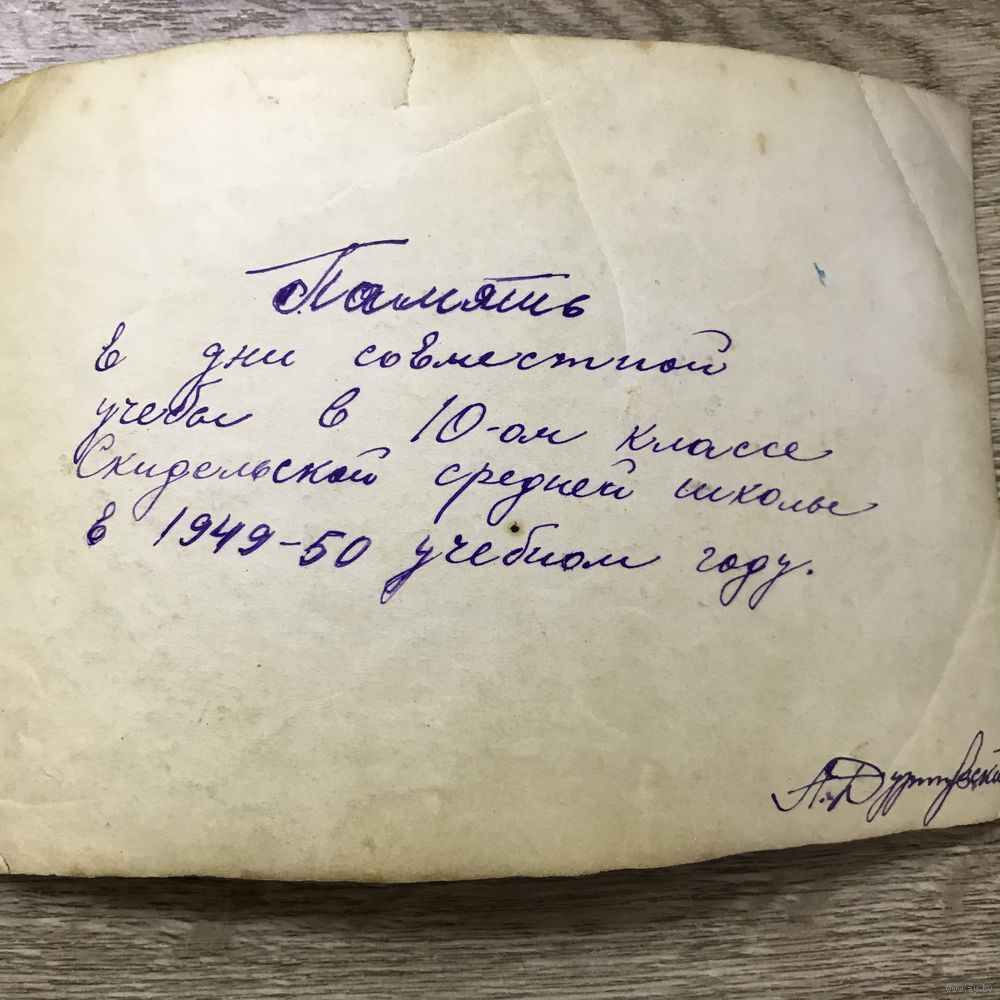 Память
в дни совместной
учебы в 10-ом классе
Скидельской средней школы
в 1949-50 учебном году.
А.
www.ay.by